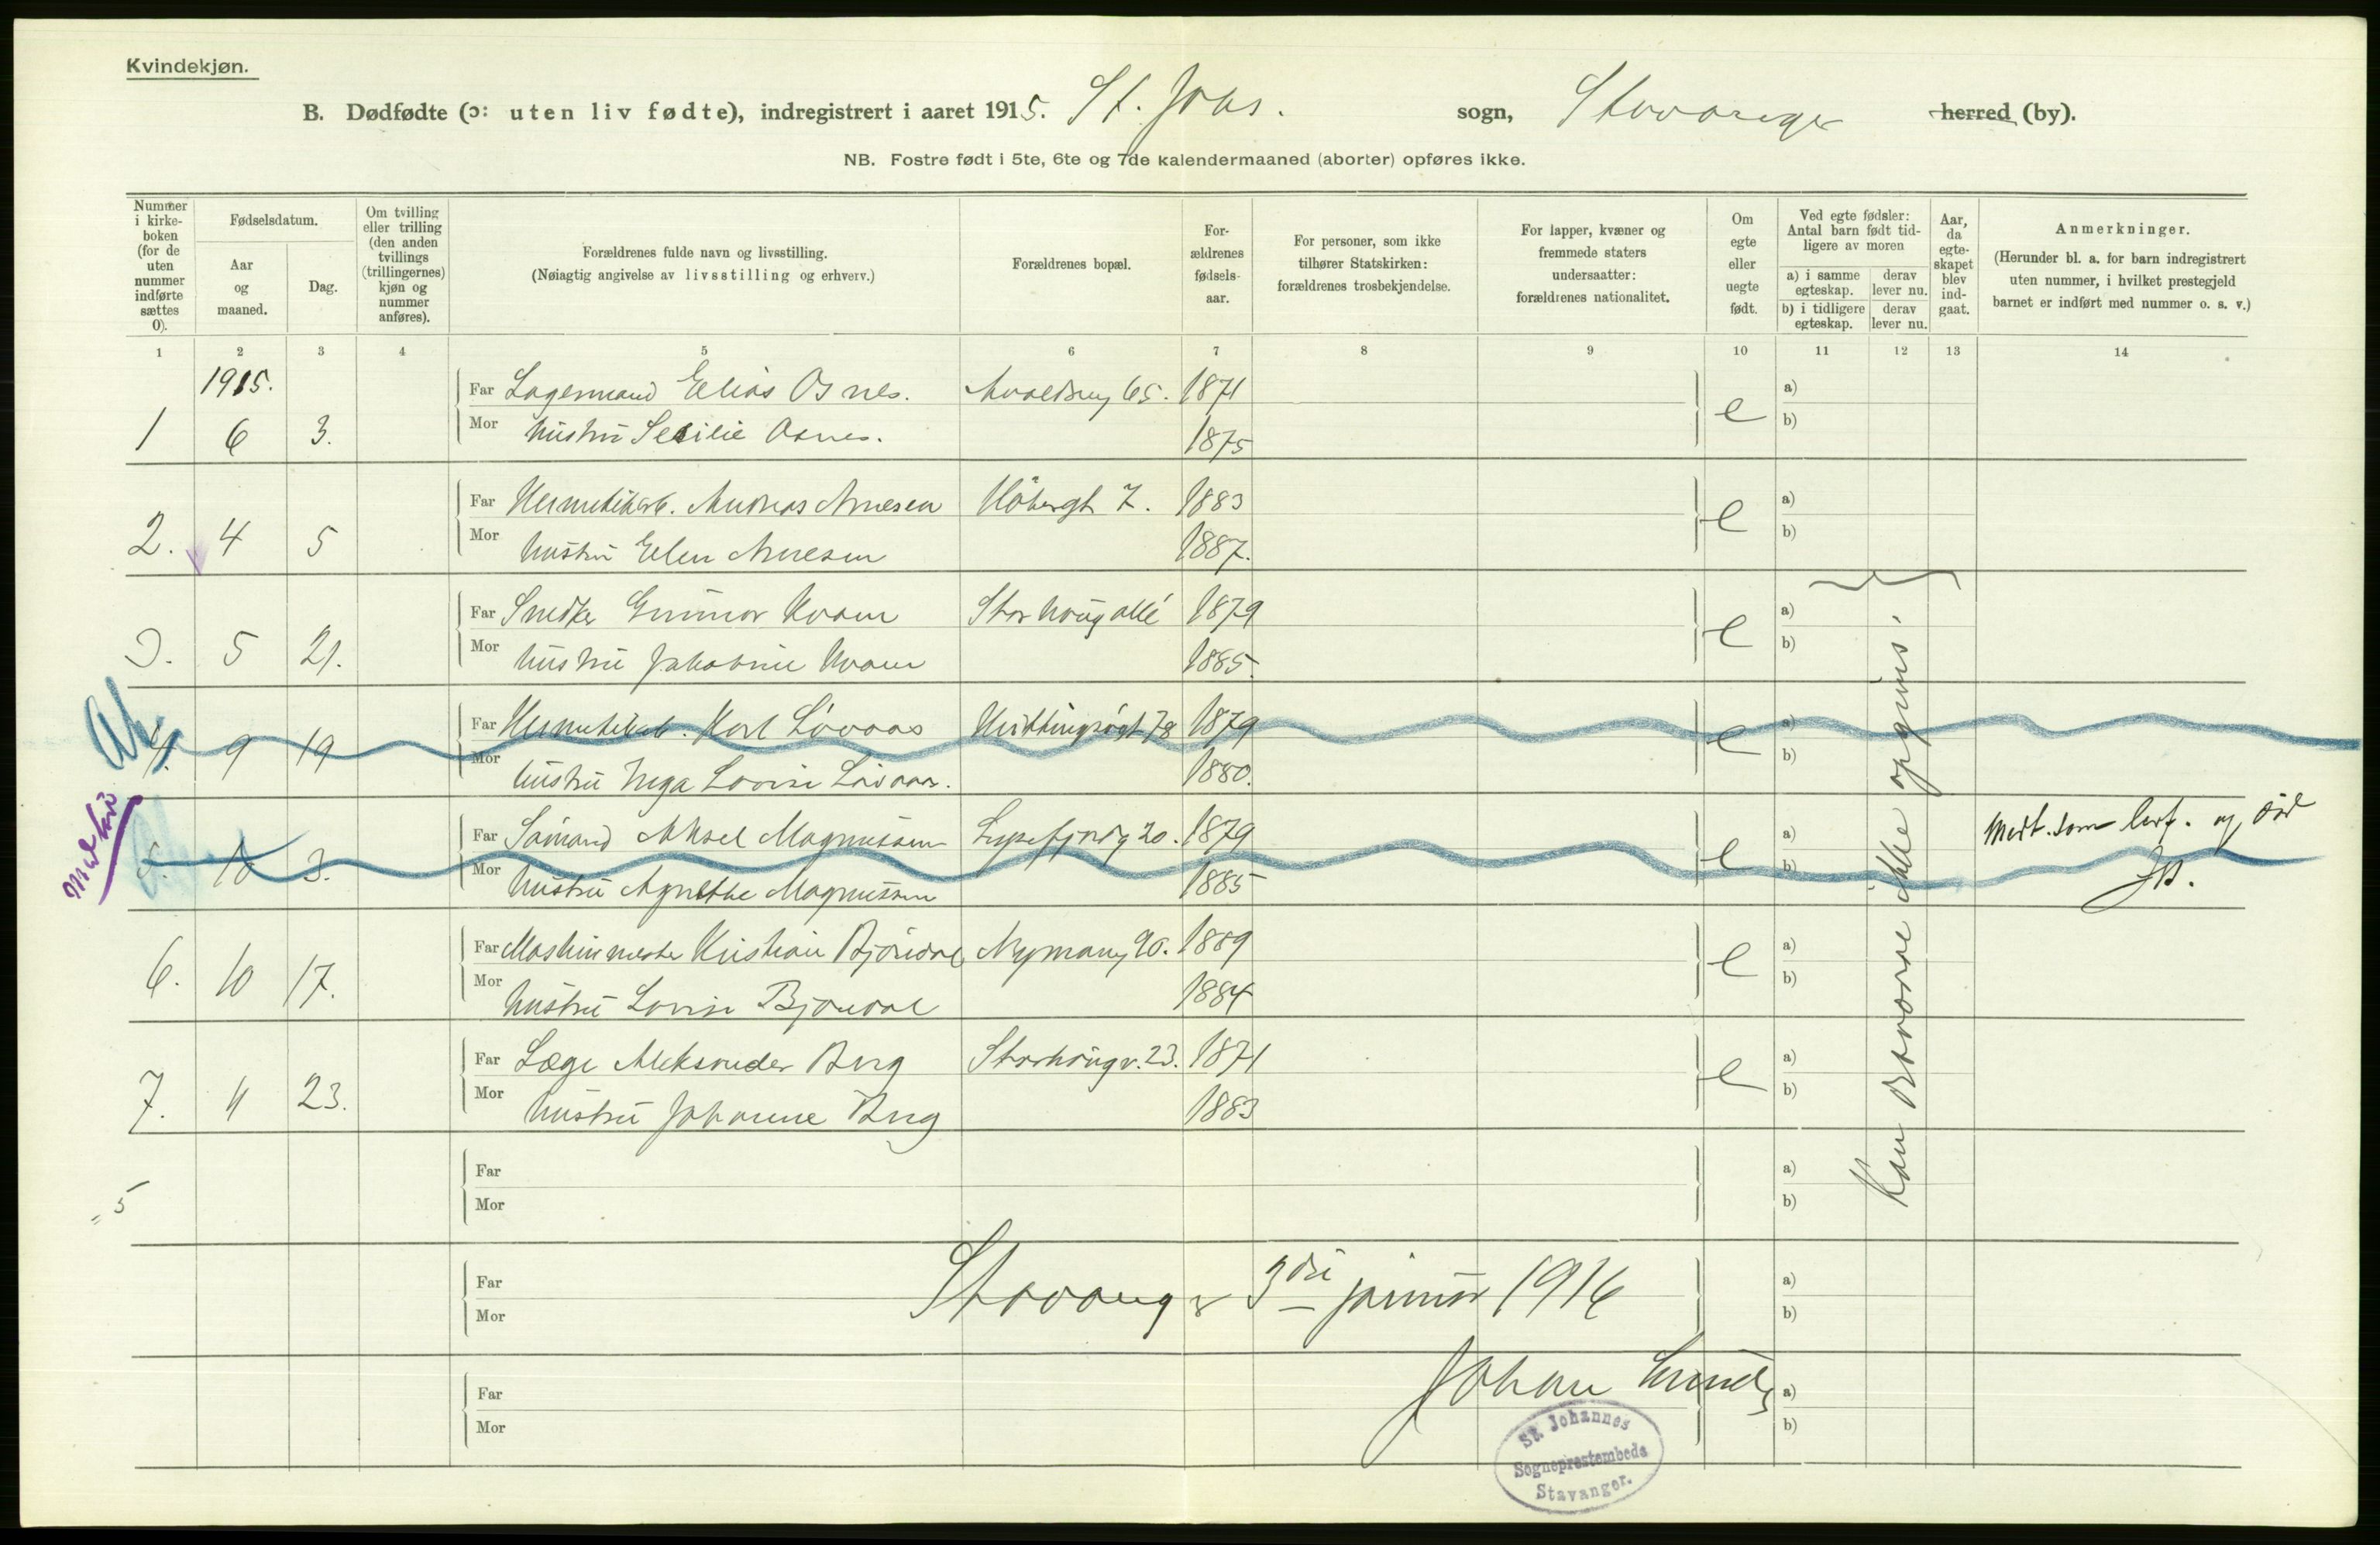 Kvindekjøn.
B. Dødfødte (ɔ: uten liv fødte), indregistrert i aaret 1915. St. Johs. sogn, Stavanger herred (by).
NB. Fostre født i 5te, 6te og 7de kalendermaaned (aborter) opføres ikke.
Nummer i kirkeboken (for de uten nummer indførte sættes 0).
Fødselsdatum.
Aar og maaned.
Dag.
Om tvilling eller trilling (den anden tvillings (trillingernes) kjøn og nummer anføres).
Forældrenes fulde navn og livsstilling.
(Nøiagtig angivelse av livsstilling og erhverv.)
Forældrenes bopæl.
Forældrenes fødselsaar.
For personer, som ikke tilhører Statskirken: forældrenes trosbekjendelse.
For lapper, kvæner og fremmede staters undersaatter: forældrenes nationalitet.
Om egte eller uegte født.
Ved egte fødsler: Antal barn født tidligere av moren
a) i samme egteskap. derav lever nu.
b) i tidligere egteskap. derav lever nu.
Aar, da egteskapet blev indgaat.
Anmerkninger.
(Herunder bl. a. for barn indregistrert uten nummer, i hvilket prestegjeld barnet er indført med nummer o. s. v.)
1 2 3 4 5 6 7 8 9 10 11 12 13 14
1915.
Far Lagermand Elias Osnes. 65. 1871 a)
1 6 3. Mor hustru Sesilie Osnes. 1875 e b)
Far Hermetikarb. Andreas Arnesen 7. 1883 a)
2. 4 5 Mor hustru Elen Arnesen 1887. e b)
Far Snedker Gunnar Kvam Storhaug allé 1879 a)
3. 5 21. Mor hustru Jakobine Kvam 1885. e b)
Far Hermetikarb. Karl Lövaas 78 1879 a)
4. 9 19 Mor hustru Inga Lovise Lövaas. 1880. e b)
Far Sömand Aksel Magnussen Lysefjordg 20. 1879 a) Medt. som lev f. og död
5. 10 3. Mor hustru Agnethe Magnussen 1885 e b)
Far Maskinmester Kristian Bjöndal Nymansg 90. 1889 a)
6. 10 17. Mor hustru Lovise Bjöndal 1884 e b)
Far Læge Aleksander Berg Storhaugv. 23. 1871 a)
7. 11 23. Mor hustru Johanne Berg 1883 e b)
Kan desværre ikke opgives.
Far a)
= 5 Mor b)
Far a)
Stavanger 3die januar 1916
Mor b)
Johan Lunde
Far a)
Mor b)
St. Johannes
Sogneprestembede
Stavanger.